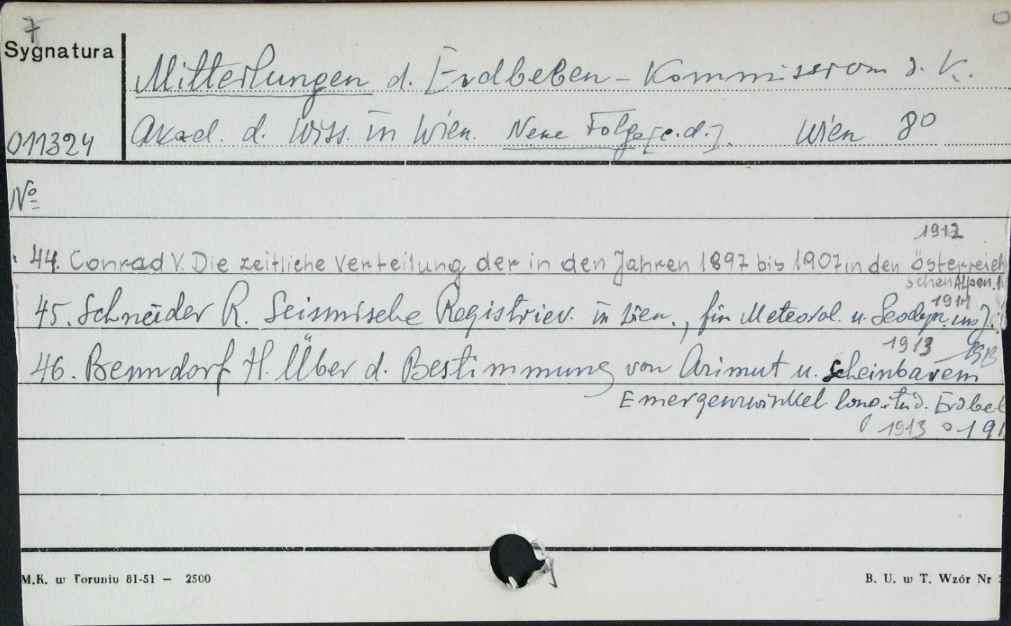 7
Sygnatura
Mitteilungen d. Erdbeben-Kommission d. K.
011324
Akad. d. Wiss. in Wien. Neue Folge[c.d.]. Wien 8º
Nº
1912
44. Conrad V. Die zeitliche Verteilung der in den Jahren 1897 bis 1907 in den österreich
schen Alpen
45. Schneider R. Seismische Registrier. in Wien., für Meteorol. u. Geodyn. im J.
1911
1913
46. Benndorf H. Über d. Bestimmung von Azimut u. scheinbarem
Emergenzwinkel longitud. Erdbeb
1913
M.K. w Toruniu 81-51 — 2500
B. U. w T. Wzór Nr